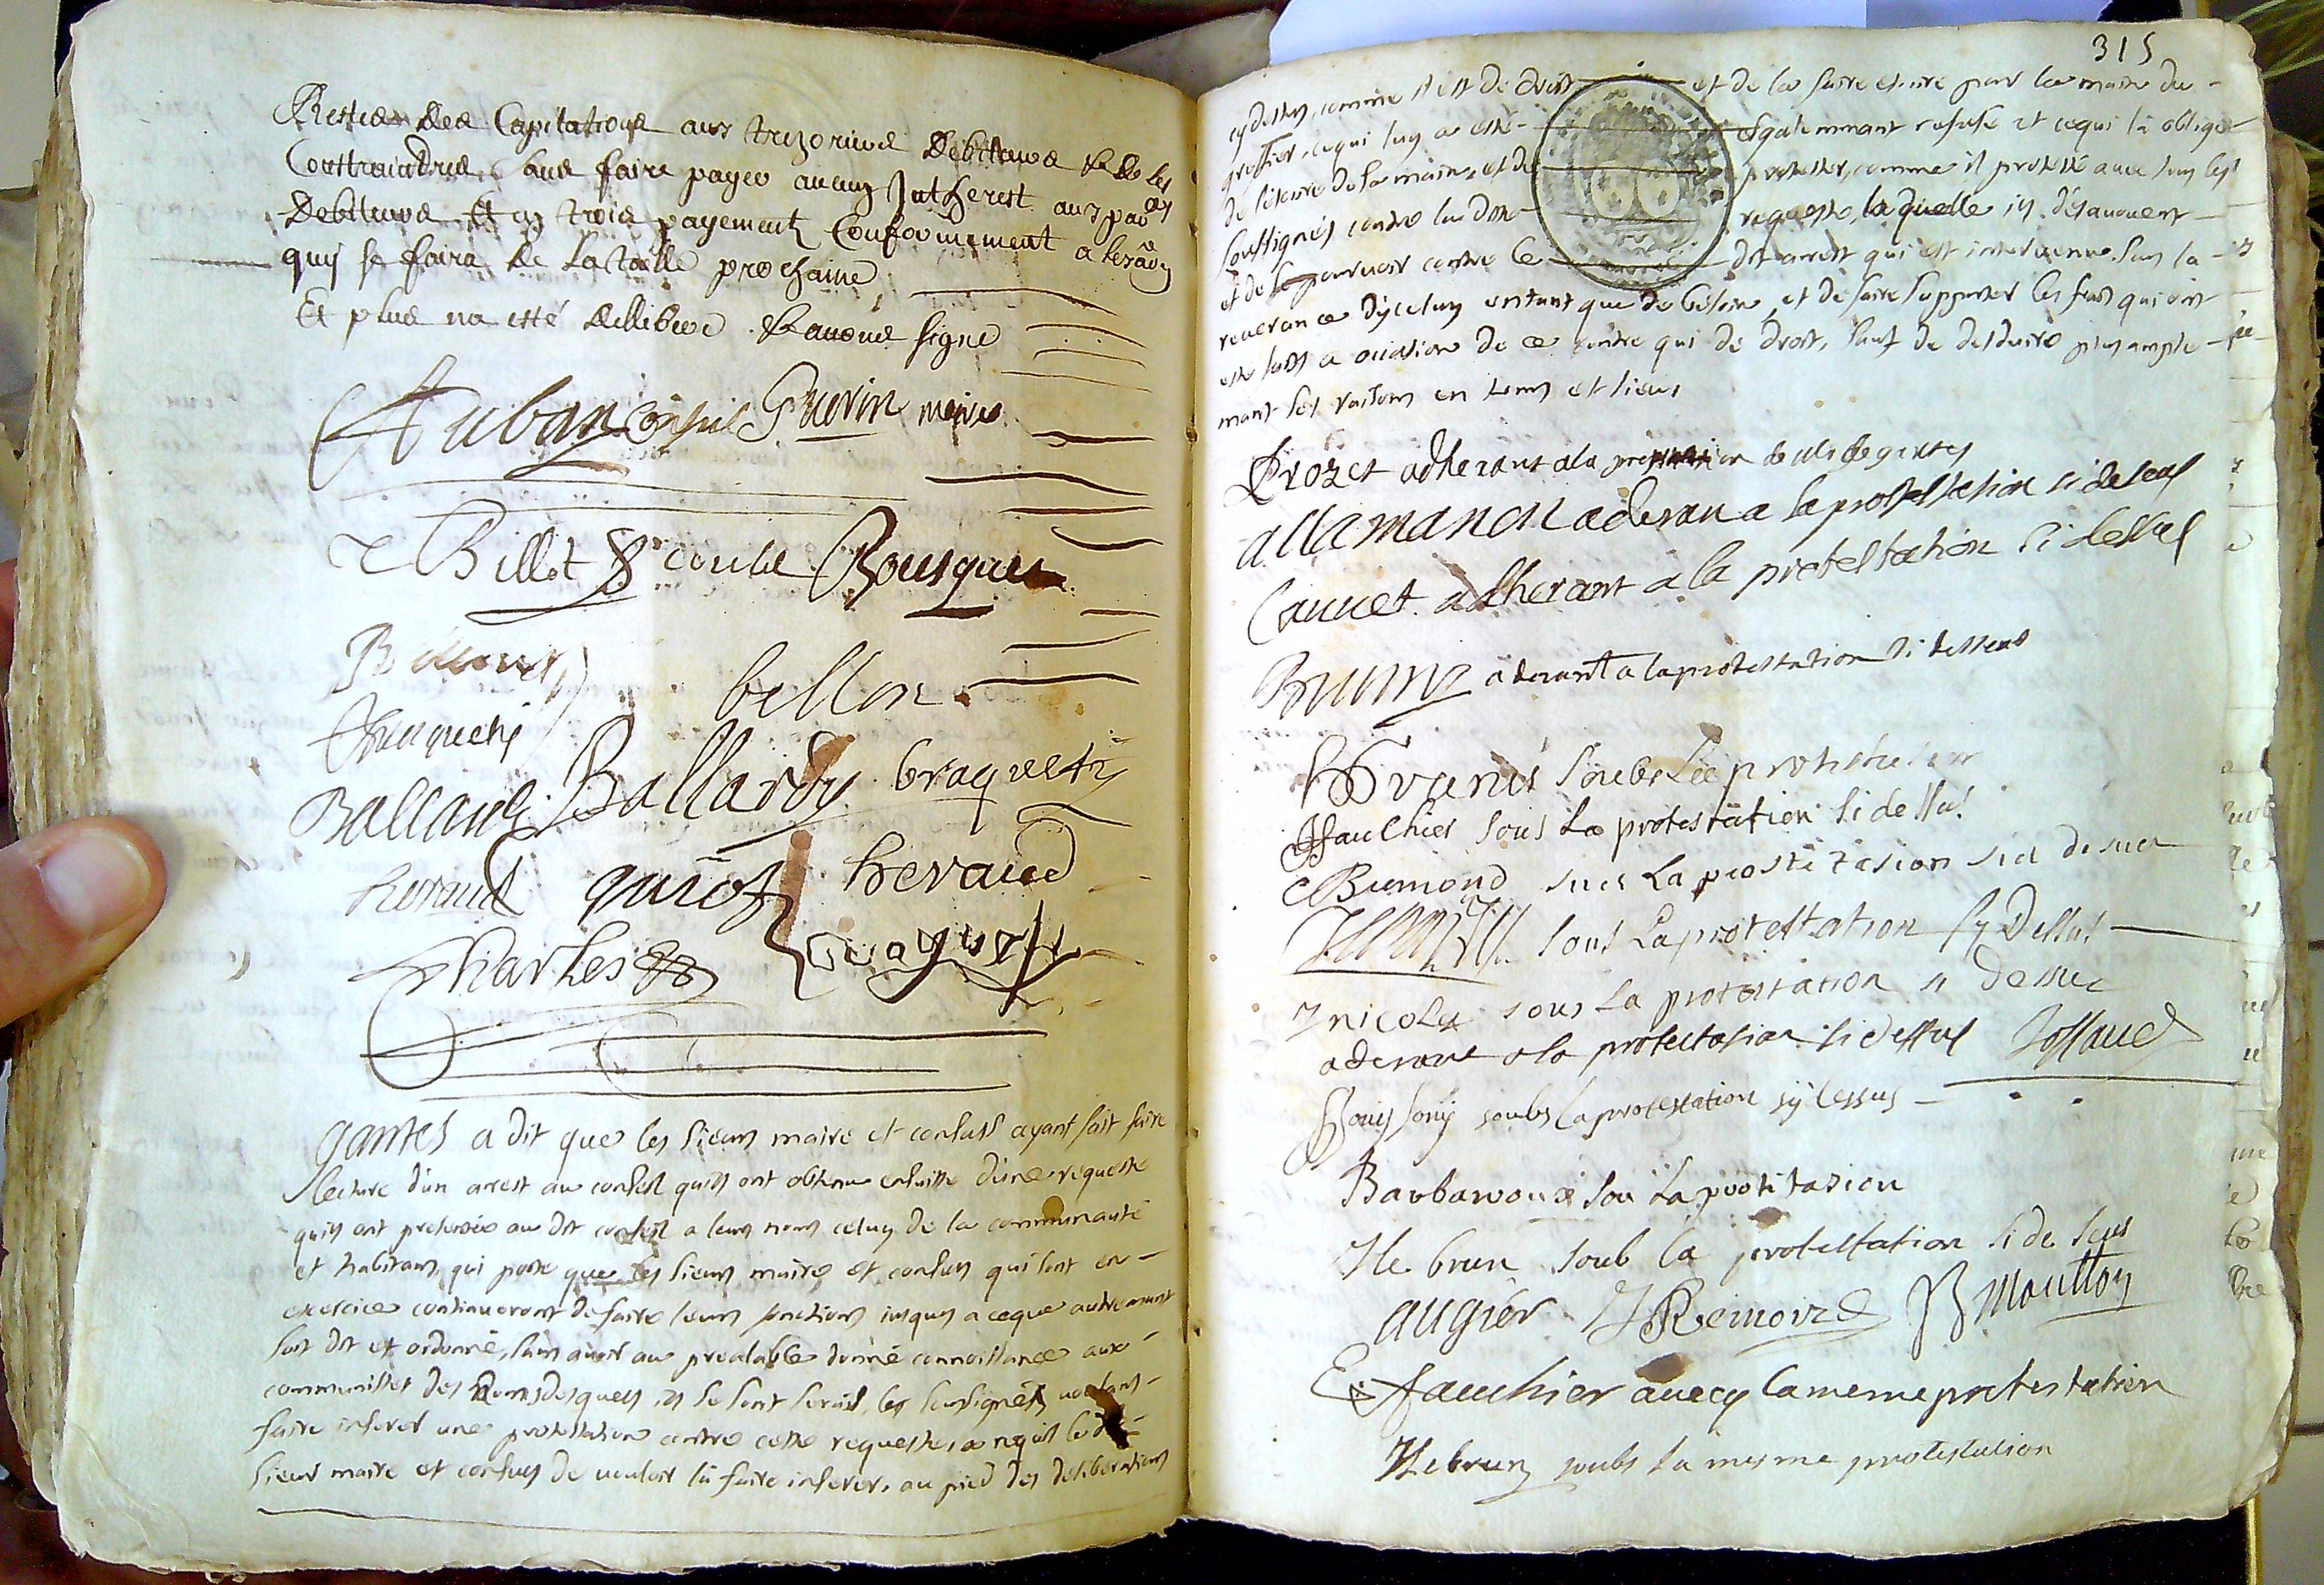 Restes des Capitations aux trezoriers debiteurs & de les
Contraindres sans faire payer aucun Intherest aux pauvres
Debiteurs Et en trois payements Conformement a lesdv
quy se faira de La taille prochaine
Et plus na esté dellibere & avons signe
Auban Consul Guerin maire
Billot consul Rousquet
bellon
Ballardy braquety
heraud guiot heraud
Charles
gantes a dit que les sieurs maire et consuls ayant fait faire
lecture d'un arrest au conseil quils ont obtenu ensuitte d'une requeste
quils ont presentée au dit conseil a leurs noms celuy de la communauté
et habitans, qui porte que les sieurs maire et consuls qui sont en
exercice continueront de faire leurs fonctions jusques a ceque autrement
soit dit et ordonné, sans avoir au prealable donné connoissance aux
communistes des noms desquels ils se sont servis, les soussignés voulans
faire inserer une protestation contre cette requeste, a requis le dit
sieurs maire et consuls de vouloir la faire inserer, au pied des deliberations
315
cy dessus, comme il est de droit et de la faire ecrire par la main du
greffier, cequi luy a esté esgalemmant refusé et cequi la obligé
de l'escrire de sa main, et de protester, comme il proteste avec tous les
soussignés contre la dite requeste, laquelle ils désavouent
et de se pourvoir contre le dit arrest qui est intervenu, sans la
reverance d'yceluy entant que de besoin, et de faire supporter les frais qui ont
esté faits a ocasion de ce contre qui de droit, sauf de desduire plus ample
mant ses raisons en tems et lieu
Crozet adherant a la de mr de gantes
allamanon aderan a la protestation si desus
Cauvet adherant a la protestation si dessus
Brunn aderant a la protestation si dessus
soubs la protestation
ffauchier sous La protestation si dessus
Bremond sus La prostitasion sie desus
sous La protestation sy Dessus
J nicolas sous La protestation si Dessus
aderant a la protestation si dessus Jossaud
Bouissony soubs la protestation sy dessus
Barbaroux sou La protitasion
He brun soub la protestation si de sus
augier J Remoize JB Moutton
E fauchier avecq la meme protestation
H lebrun soubs la mesme protestation